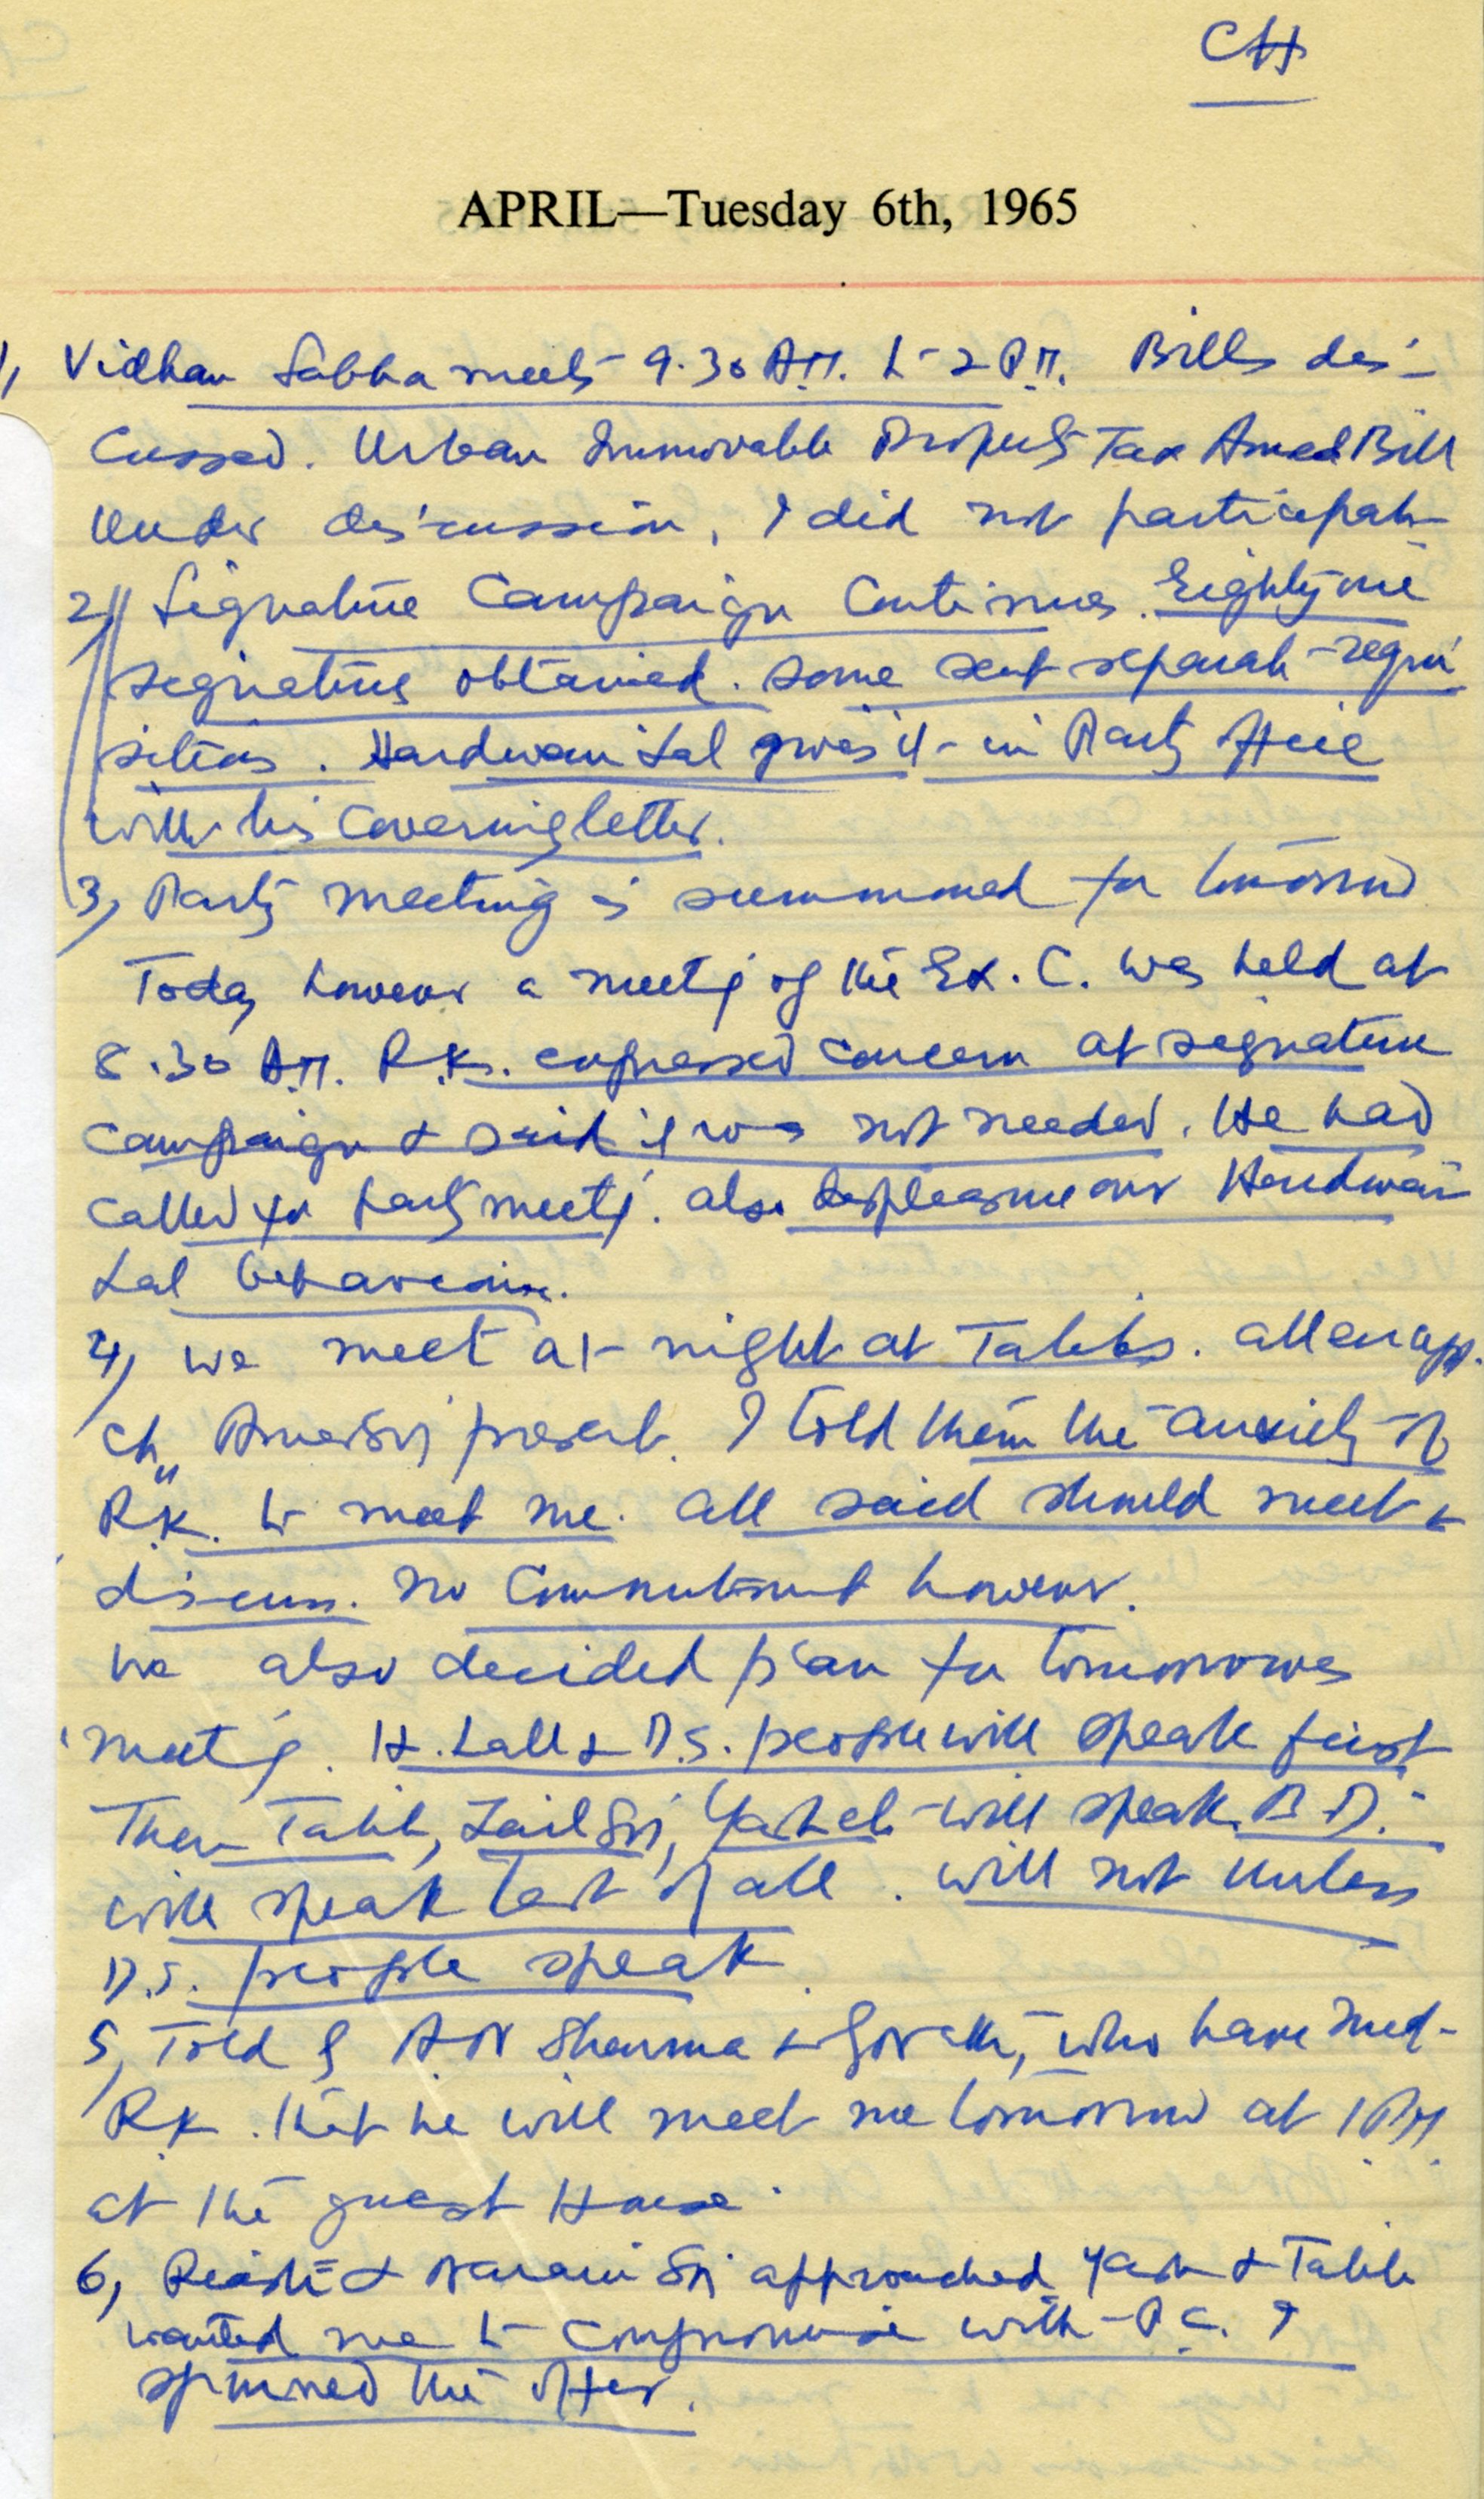 CH
APRIL—Tuesday 6th, 1965
1, Vidhan Sabha meets 9.30 A.M. to 2 P.M. Bills dis-
cussed. Urban Immovable Property Tax Amed Bill
under discussion, I did not participate
2, Signature Campaign Continues. Eighty one
signatures obtained. some sent separate requi
sitions. Hardwari Lal gives it in Party office
with his covering letter.
3, Party meeting is summoned for tomorrow
Today however a meeting of the Ex. C. was held at
8.30 A.M. R.K. expressed concern at signature
campaign & said it was not needed. He had
called for party meeting. also displeasure over Hardwari
Lal behaviour.
4, we meet at night at Talibs. all
Ch. present. I told them the anxiety of
R.K. to meet me. all said should meet &
discuss. No Commitment however.
We also decided plan for tomorrows
meeting. H. Lall & D.S. people will speak first
Then Talib, Zail Sn, Yash etc will speak. B.D.
will speak last of all. will not unless
D.S. people speak
5, Told A N Sharma & who have met
R.K. that he will meet me tomorrow at 1 PM.
at the guest House.
6, & Narain Sn approached Yash & Talib
wanted me to compromise with P.C. I
spurned the offer.